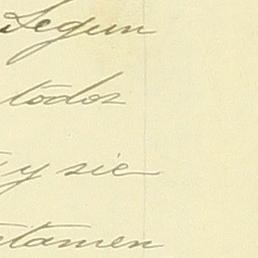 Segun
todos
y sie
tamen